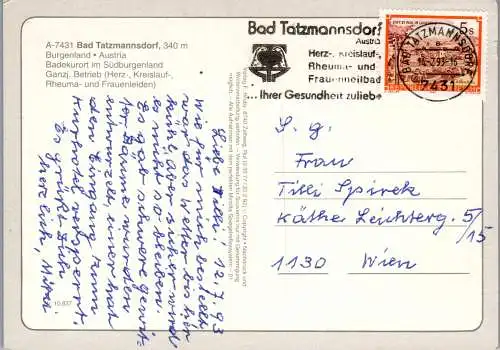 A-7431 Bad Tatzmannsdorf, 340 m
Burgenland • Austria
Badekurort im Südburgenland
Ganzj. Betrieb (Herz-, Kreislauf-,
Rheuma- und Frauenleiden)
Bad Tatzmannsdorf
Austria
Herz-, Kreislauf-,
Rheuma- und
Frauenheilbad
...Ihrer Gesundheit zuliebe
5s
BAD TATZMANNSDORF
7431
12.7.93
Liebe Titti!
Wie für mich bestellt
war das Wetter bis hier
kühl, aber sicher wird
es nicht so bleiben.
Es gab schwere Gewit-
ter, Bäume wurden
entwurzelt, einer hat
den Eingang zum
Kurhotel versperrt.
Es grüßt Dich
herzlich,
S. g.
Frau
Titti Spirek
Käthe Leichterg. 5/
15
1130 Wien
10.837